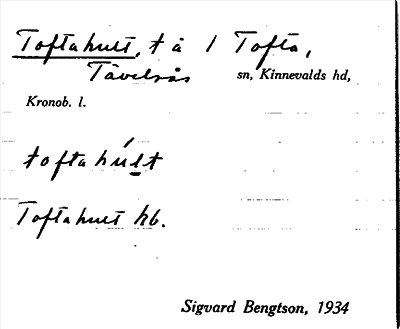 Toftahult, t å 1 Tofta,
Tävelsås sn, Kinnevalds hd,
Kronob. l.
toftahúlt
Toftahult hb.
Sigvard Bengtson, 1934